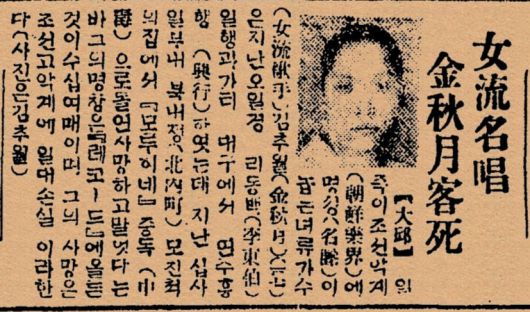 女流名唱
金秋月客死
【大邱】 일
즉이조선악계
(朝鮮樂界)에
명성(名聲)이
놉든녀류가수
(女流歌手)김추월(金秋月)
은지난오일경 리동백(李東伯)
일행과가티 대구에서 연주흥
행(興行)하엿는데 지난십사
일부내 북내정(北內町) 모친척
의집에서 『모루히네』 중독(中
毒)으로돌연사망하고말엇다는
바그의명창은『레코ー드』에올른
것이수십여매이며 그의 사망은
조선고악계에 일대손실 이라한
다(사진은김추월)